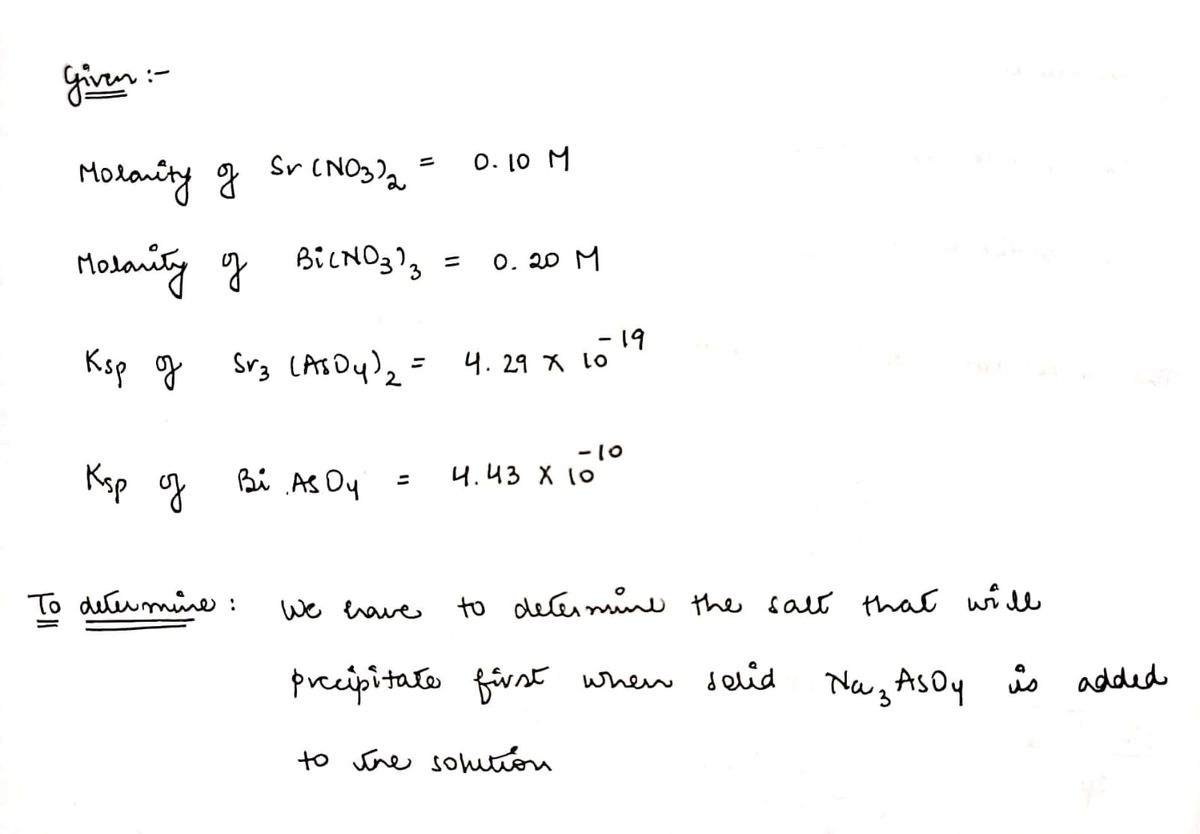 Given :-
Molarity of Sr(NO3)2 = 0.10 M
Molarity of Bi(NO3)3 = 0.20 M
Ksp of Sr3 (AsO4)2 = 4.29 × 10^-19
Ksp of Bi AsO4 = 4.43 × 10^-10
To determine : We have to determine the salt that will
precipitate first when solid Na3AsO4 is added
to the solution